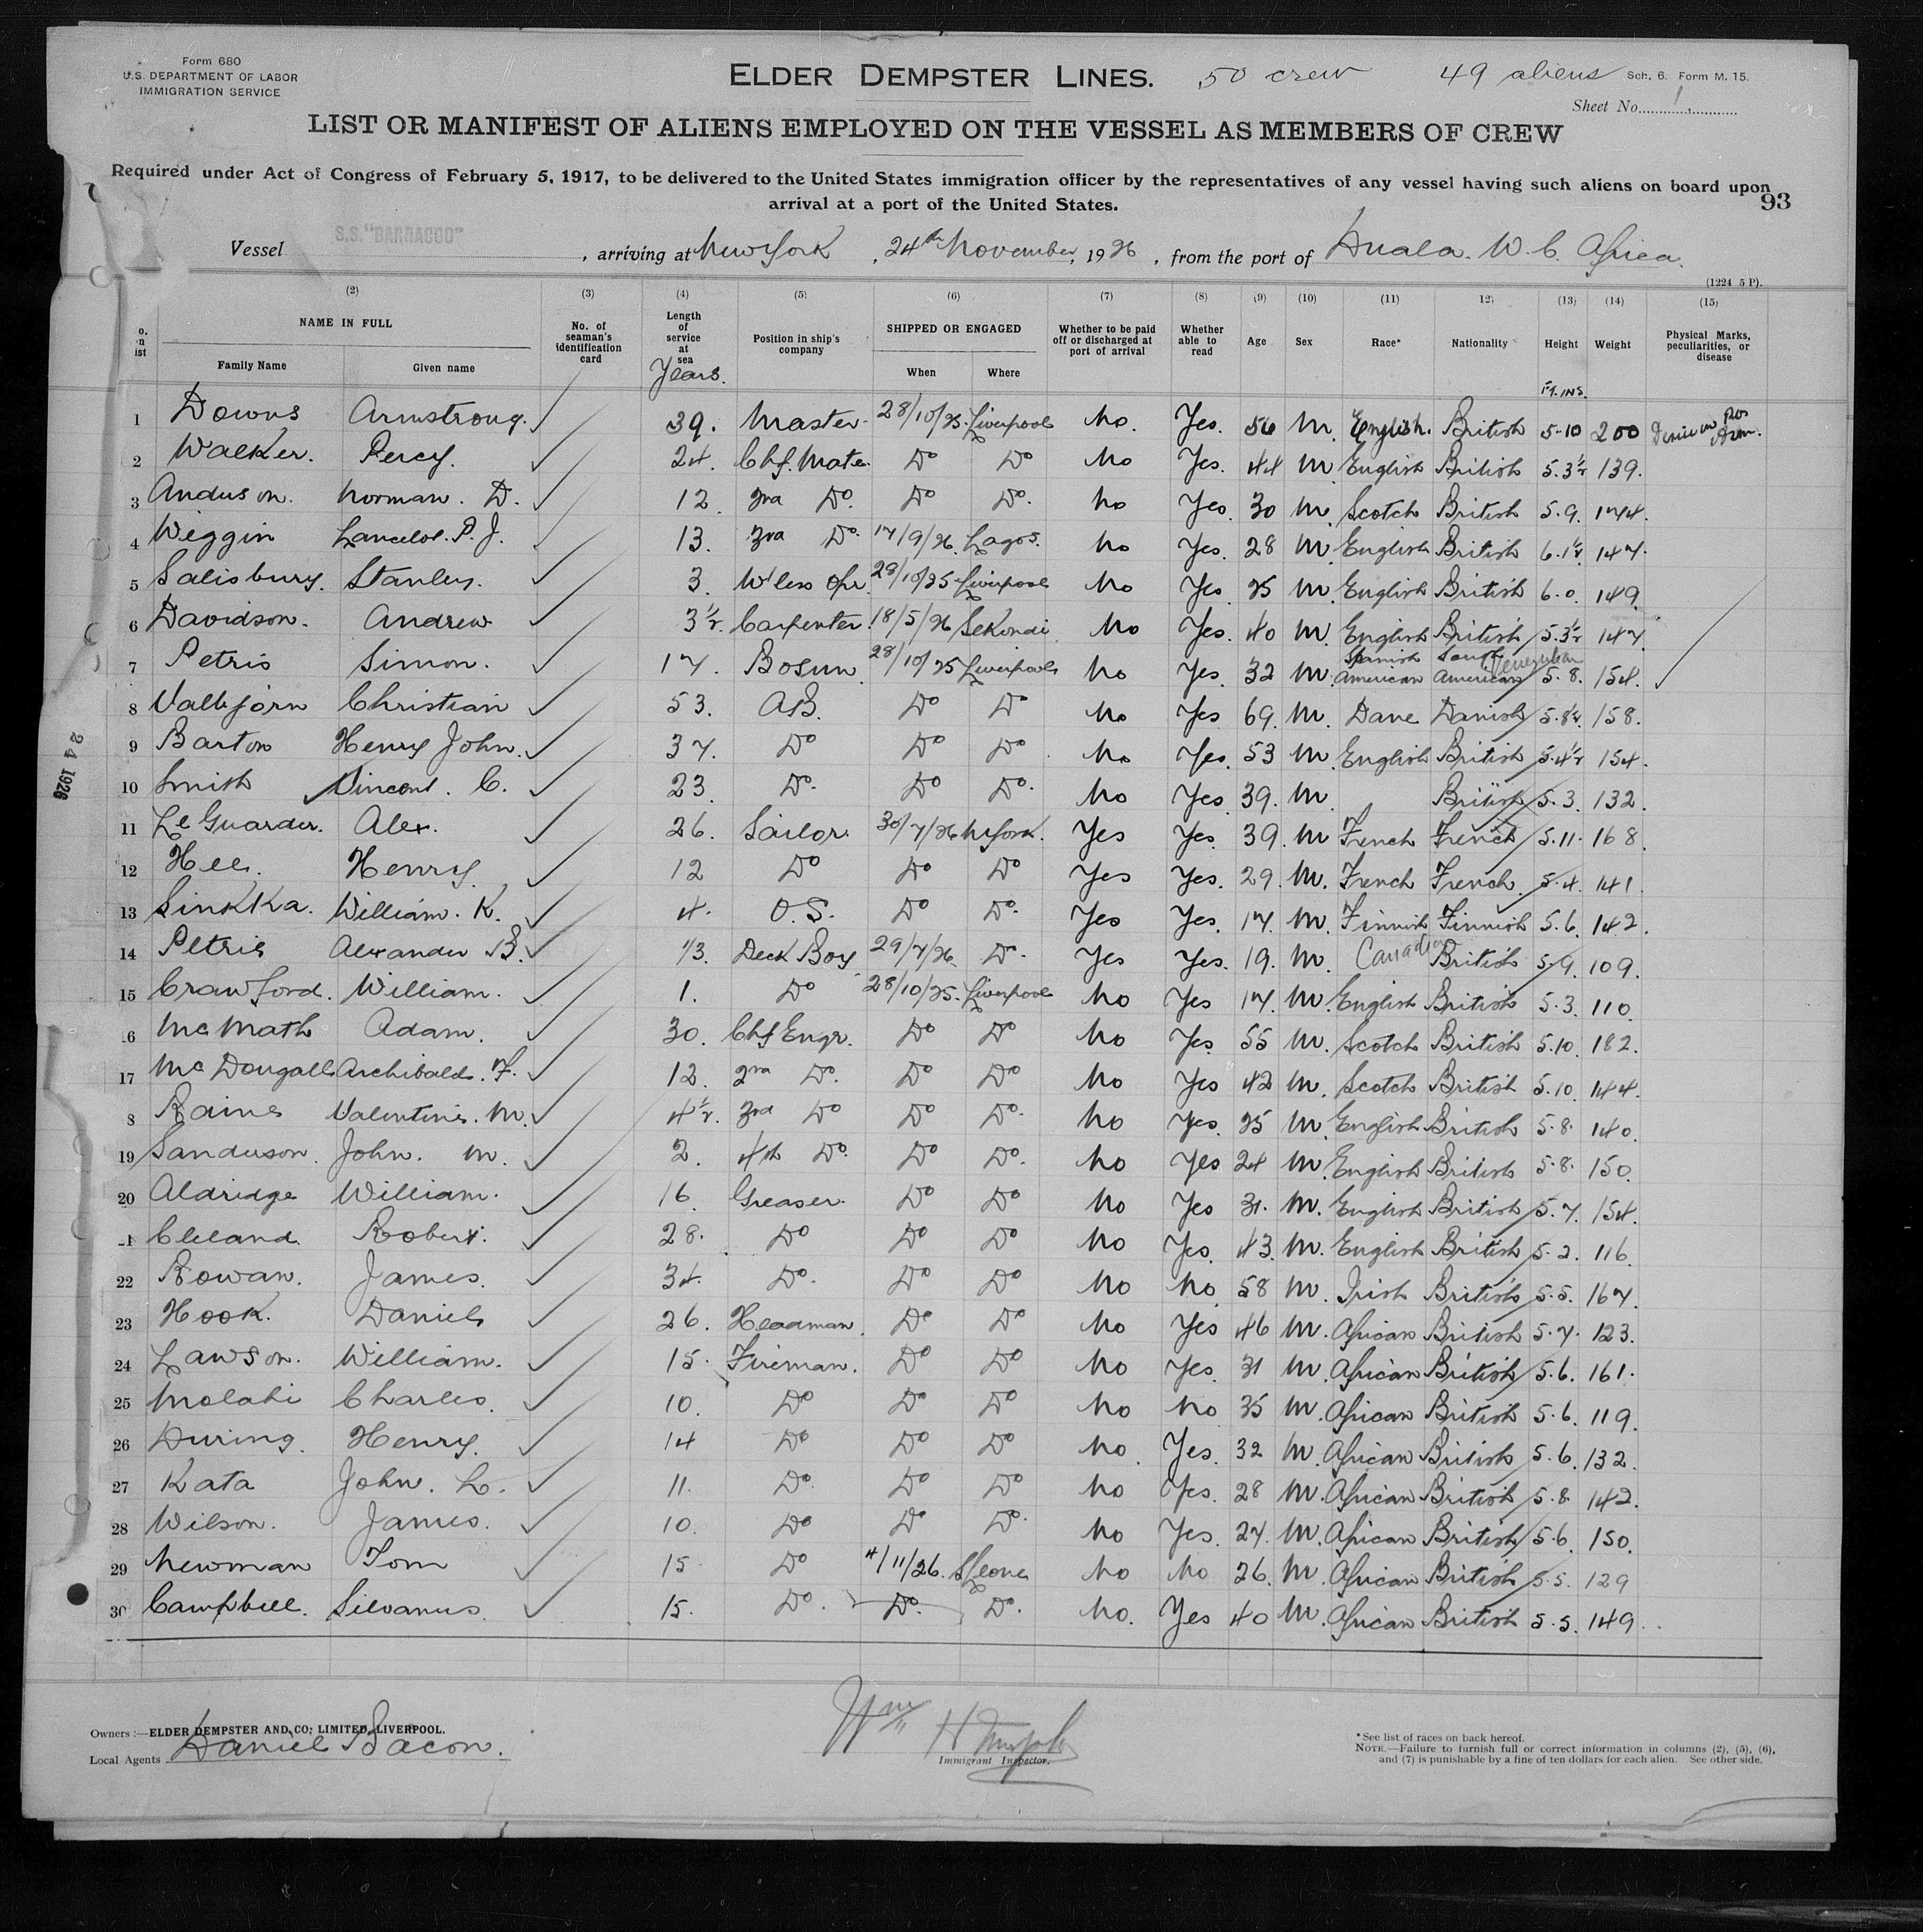 Form 680
U.S. DEPARTMENT OF LABOR
IMMIGRATION SERVICE
ELDER DEMPSTER LINES. 50 crew 49 aliens Sch. 6. Form M. 15.
Sheet No. 1.
LIST OR MANIFEST OF ALIENS EMPLOYED ON THE VESSEL AS MEMBERS OF CREW
Required under Act of Congress of February 5, 1917, to be delivered to the United States immigration officer by the representatives of any vessel having such aliens on board upon
arrival at a port of the United States.
93
Vessel S.S. "BARRAGOO", arriving at New York, 24th November, 1926, from the port of Duala. W. C. Africa.
(1224 5 P).
(2) (3) (4) (5) (6) (7) (8) (9) (10) (11) 12) (13) (14) (15)
NAME IN FULL No. of seaman's identification card Length of service at sea Years. Position in ship's company SHIPPED OR ENGAGED Whether to be paid off or discharged at port of arrival Whether able to read Age Sex Race* Nationality Height Weight Physical Marks, peculiarities, or disease
Family Name Given name When Where Ft. INS.
1 Downs Armstrong. 39. Master. 28/10/25. Liverpool No. Yes. 56 M. English. British 5-10 200
2 Walker. Percy. 24. Chf. Mate. Do Do No Yes. 44 M. English British 5.3½ 139.
3 Anderson. Norman. D. 12. 2nd Do. Do Do. No Yes. 30 M. Scotch British 5.9. 174.
4 Wiggin Lancelot. P. J. 13. 3rd Do. 17/9/26. Lagos. No Yes. 28 M. English British 6.1½ 147.
5 Salisbury. Stanley. 3. W'less Opr. 29/10/25 Liverpool No Yes. 25 M. English British 6.0. 149.
6 Davidson. Andrew 3½. Carpenter. 18/5/26 Sekondi No Yes. 40 M. English British 5.3½ 147.
7 Petris Simon. 17. Bosun 28/10/25 Liverpool No Yes. 32 M. Spanish American South American Venezuelan 5.8. 154.
8 Vallbjörn Christian 53. AB. Do Do No Yes 69. M. Dane Danish 5.8½. 158.
9 Barton Henry John. 37. Do Do Do. No Yes. 53 M. English British 5.4½ 154.
10 Smith Vincent. C. 23. Do. Do Do. No Yes 39. M. British 5.3. 132.
11 Le Guarder. Alex. 26. Sailor. 30/7/26 N York. Yes Yes. 39. M. French French 5.11. 168.
12 Hee. Henry. 12 Do Do Do Yes Yes. 29. M. French French. 5.4. 141.
13 Sinkka. William. K. 4. O.S. Do Do. Yes Yes. 17. M. Finnish Finnish 5.6. 142.
14 Petrie Alexander B. 1/3. Deck Boy 29/7/26. Do. Yes Yes. 19. M. Canadian British 5.9. 109.
15 Crawford. William. 1. Do 28/10/25. Liverpool No Yes 17. M. English British 5.3. 110.
16 McMath Adam. 30. Chf Engr. Do Do No Yes. 55 M. Scotch British 5.10. 182.
17 McDougall Archibald. F. 12. 2nd Do. Do Do No Yes 42 M. Scotch British 5.10. 144.
8 Raine Valentine. M. 4½. 3rd Do Do Do. No Yes. 25 M. English British 5.8. 140.
19 Sanderson. John. M. 2. 4th Do. Do Do. No Yes 24 M. English British 5.8. 150.
20 Aldridge William. 16. Greaser. Do Do No Yes 31. M. English British 5.7. 154.
21 Cleland. Robert. 28. Do Do Do No Yes. 43. M. English British 5.2. 116.
22 Rowan. James. 34. Do. Do Do No No 58 M. Irish British 5.5. 167.
23 Hook. Daniel 26. Headman. Do Do No Yes 46 M. African British 5.7. 123.
24 Lawson. William. 15. Fireman. Do Do No Yes. 31 M. African British 5.6. 161.
25 Molahi Charles. 10. Do Do Do No No 35 M. African British 5.6. 119.
26 During. Henry. 14 Do Do Do No. Yes. 32 M. African British 5.6. 132.
27 Kata John. L. 11. Do. Do Do No Yes. 28 M. African British 5.8. 142.
28 Wilson. James. 10. Do Do Do. No Yes. 27. M. African British 5.6. 150.
29 Newman Tom 15. Do 4/11/26. S/Leone No No 26. M. African British 5.5. 129
30 Campbell. Silvanus. 15. Do. Do. Do. No. Yes 40 M. African British 5.5. 149.
24 1926
Owners:—ELDER DEMPSTER AND CO; LIMITED, LIVERPOOL.
Local Agents Daniel Bacon.
Wm H
Immigrant Inspector.
*See list of races on back hereof.
NOTE.—Failure to furnish full or correct information in columns (2), (5), (6),
and (7) is punishable by a fine of ten dollars for each alien. See other side.